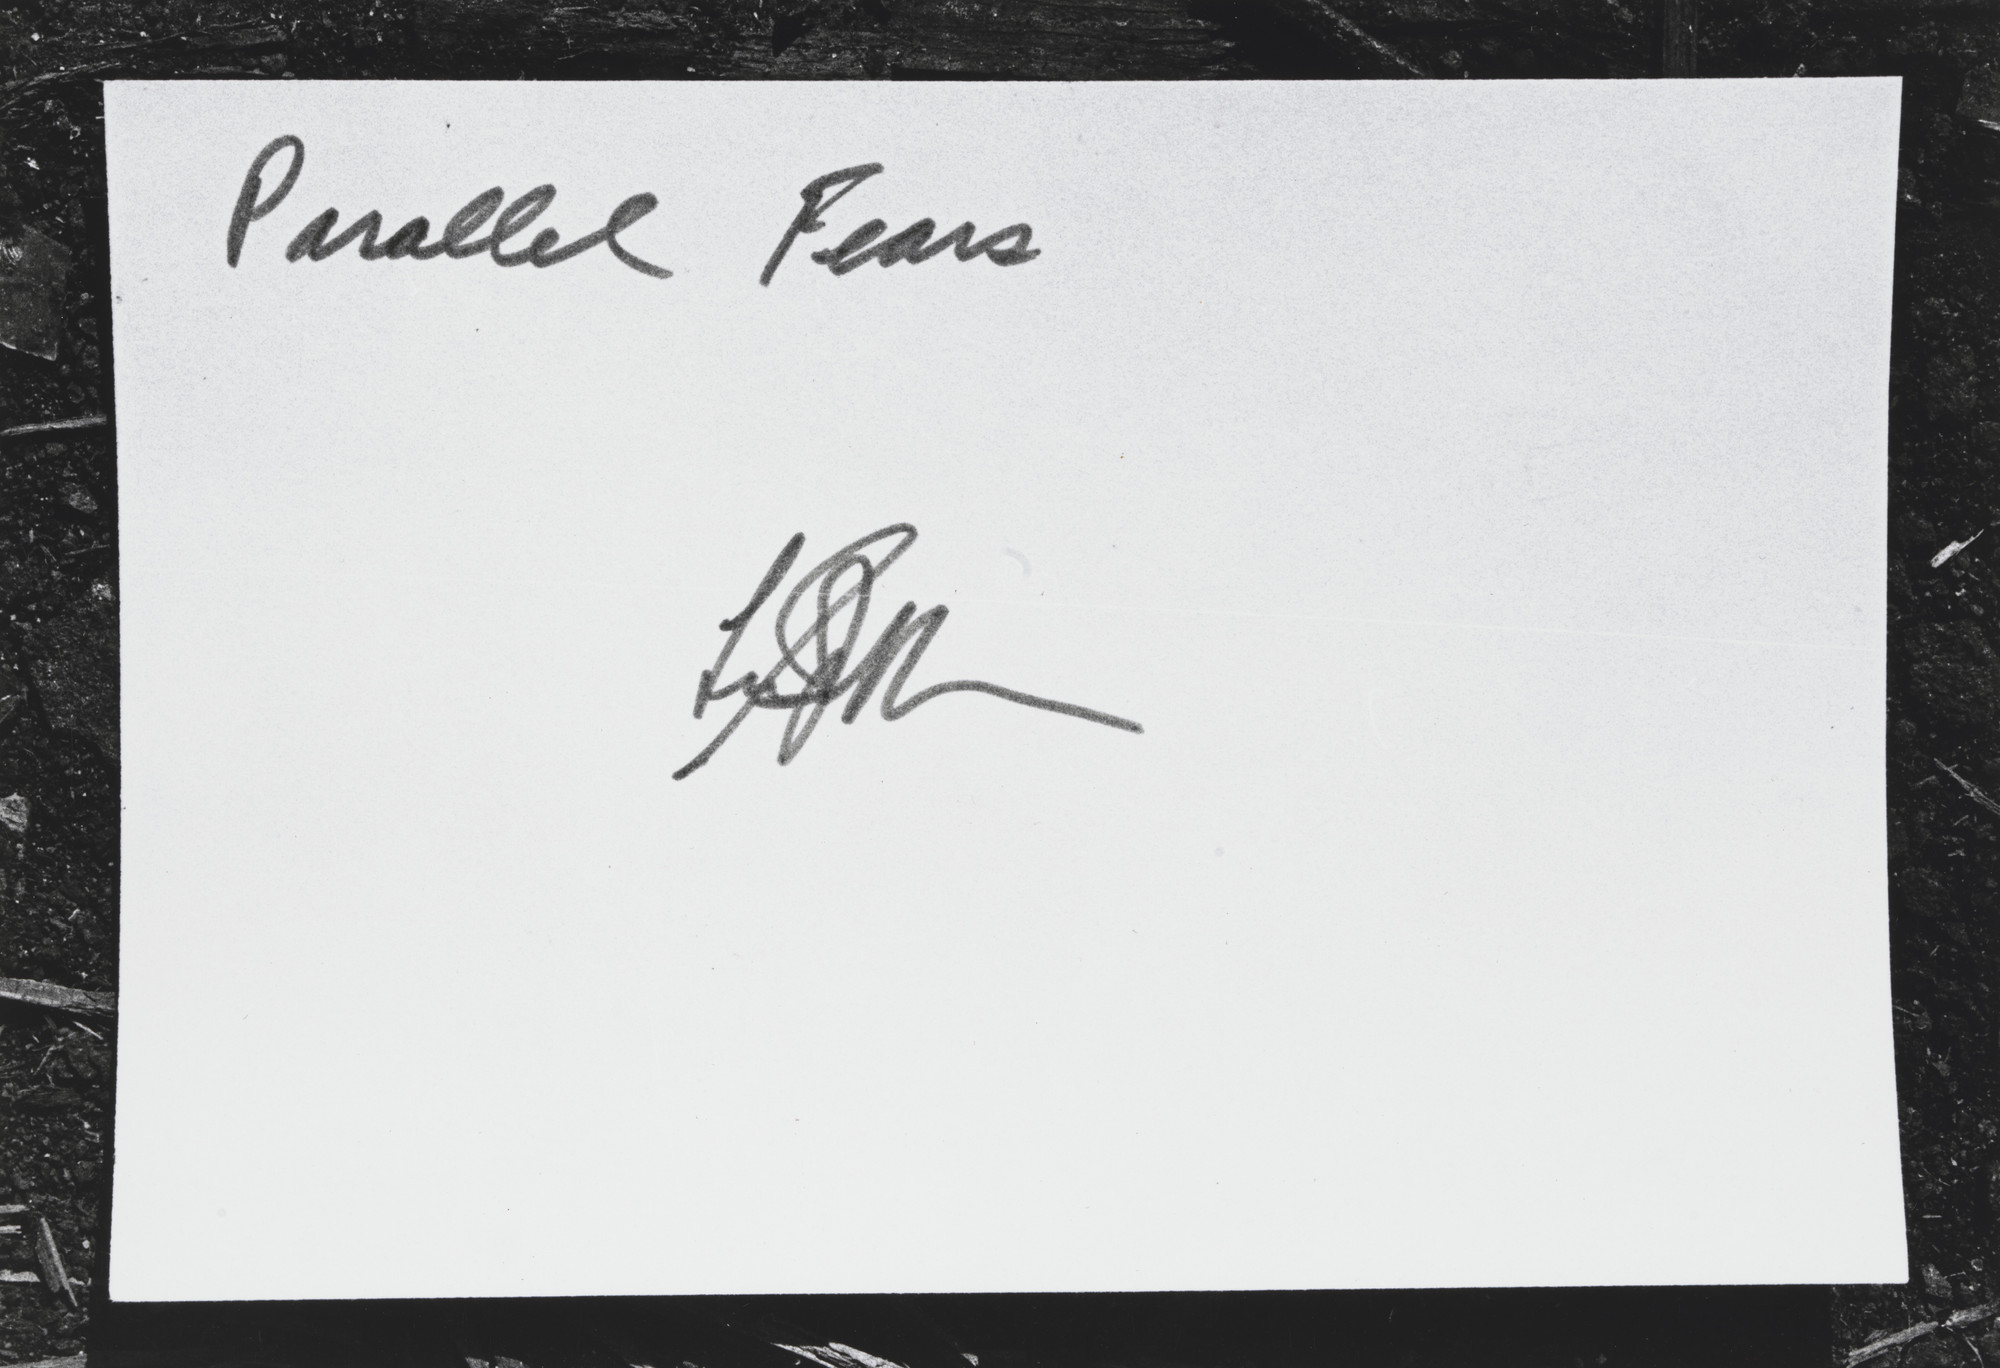 Parallel Fears